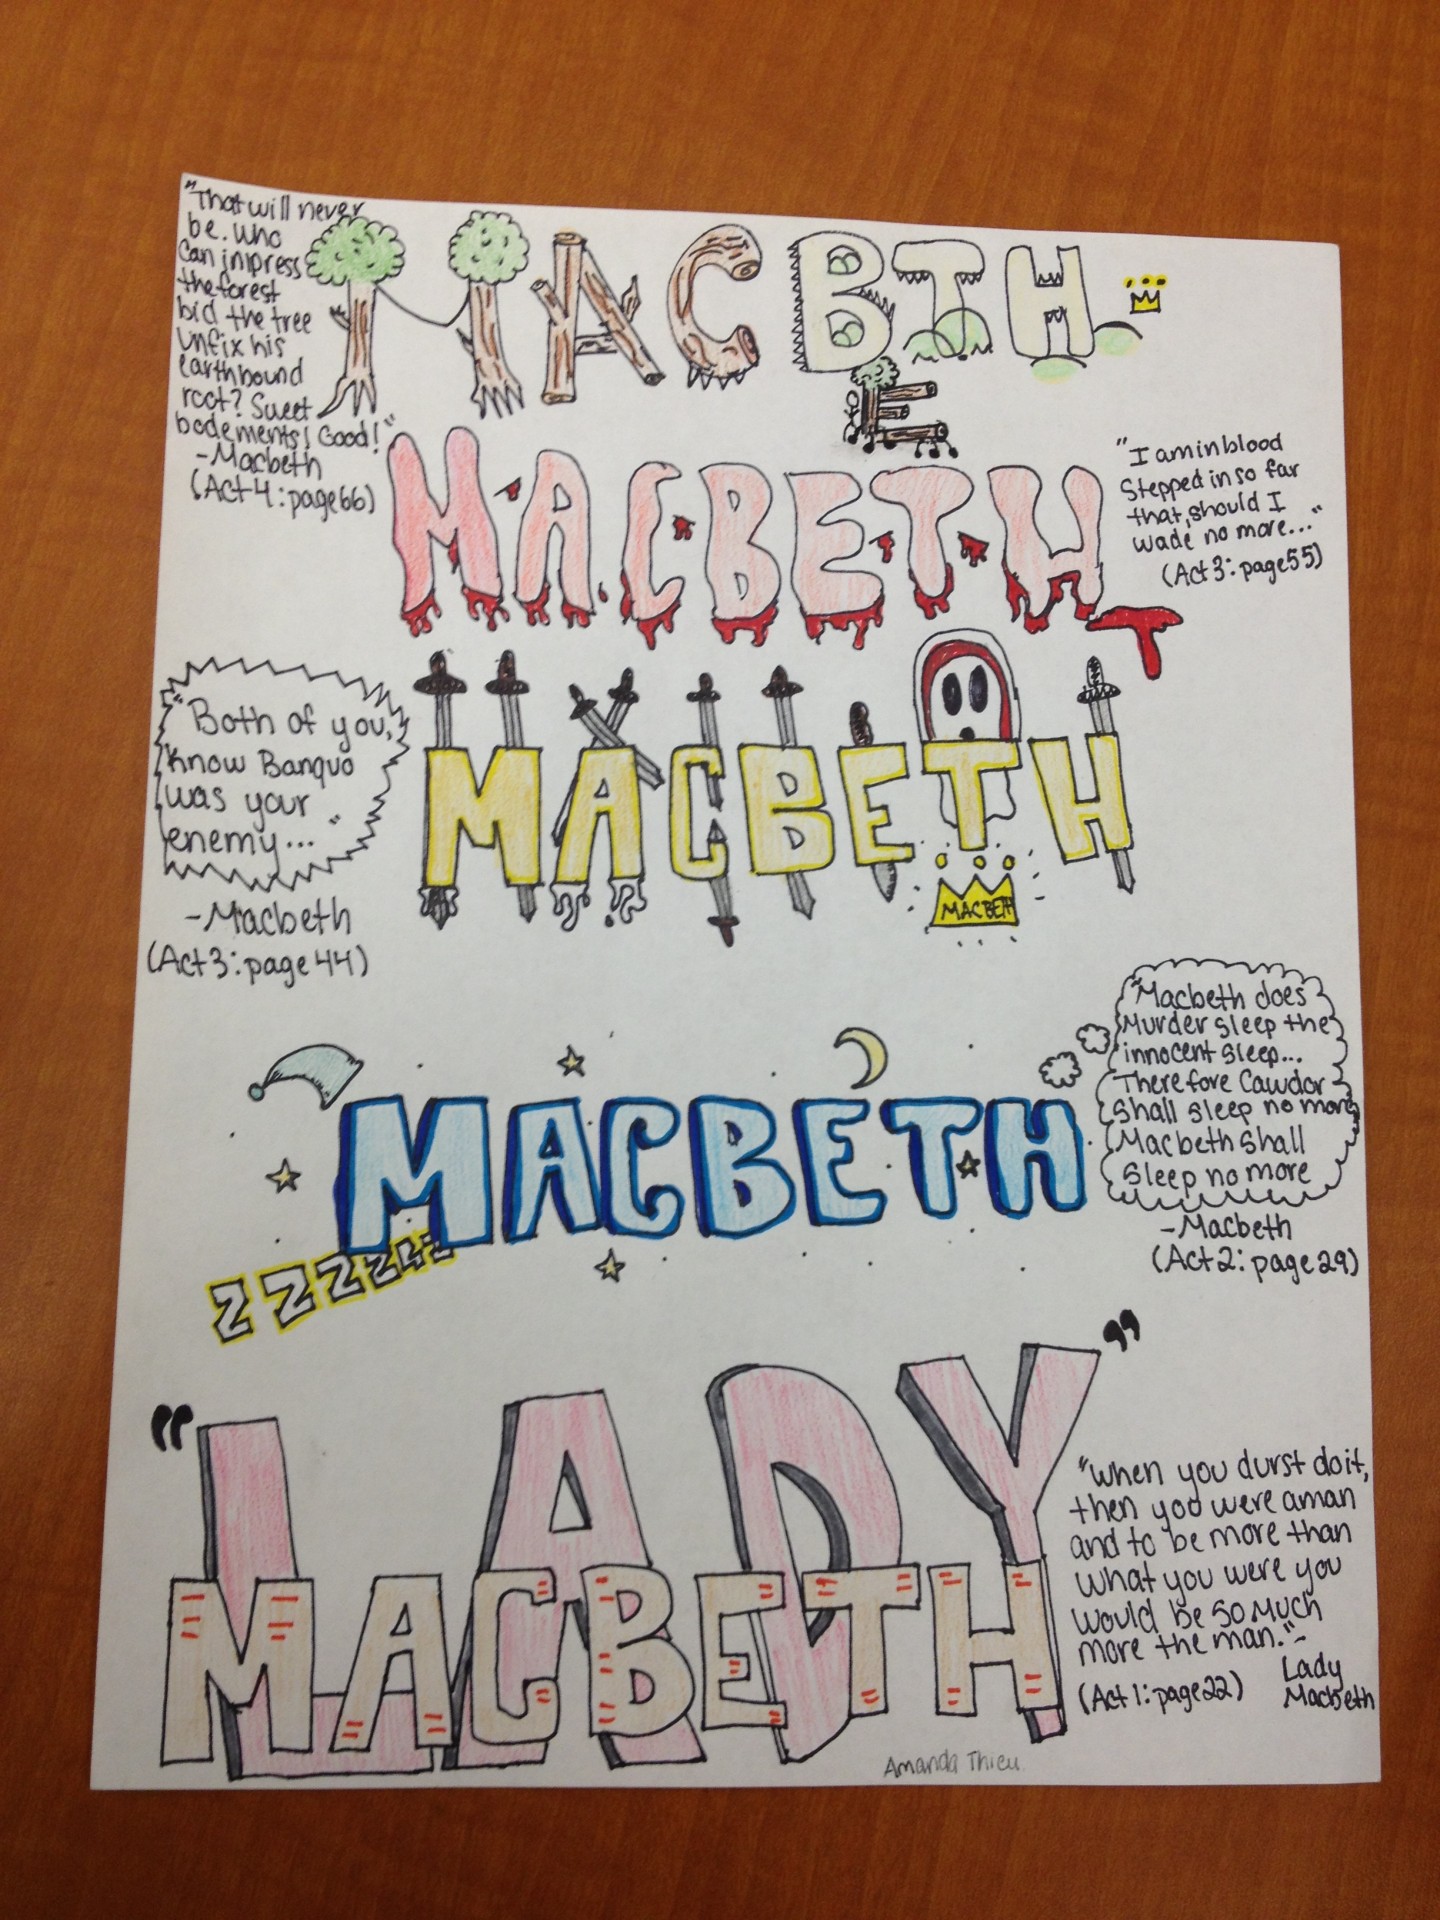 "That will never
be. Who
can inpress
the forest
bid the tree
Unfix his
earthbound
root? Sweet
bodements! Good!"
-Macbeth
(Act 4: page 66)
MACBETH
MACBETH
"I am in blood
Stepped in so far
that, should I
wade no more..."
(Act 3: page 55)
"Both of you,
Know Banquo
was your
enemy..."
-Macbeth
(Act 3: page 44)
MACBETH
MACBETH
MACBETH
ZZZZZ
"Macbeth does
Murder sleep the
innocent sleep...
Therefore Cawdor
Shall sleep no more
Macbeth Shall
Sleep no more
-Macbeth
(Act 2: page 29)
"LADY"
MACBETH
"When you durst do it,
then you were a man
and to be more than
what you were you
would be so much
more the man."-
Lady
Macbeth
(Act 1: page 22)
Amanda Thieu